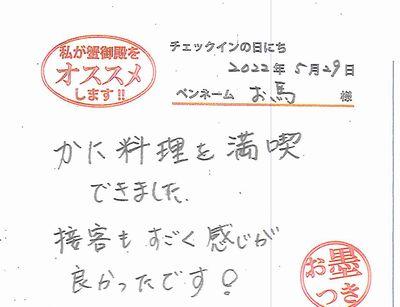 私が蟹御殿を
オススメ
します!!
チェックインの日にち
2022年5月29日
ペンネーム お馬 様
かに料理を満喫
できました
接客もすごく感じが
良かったです!
お墨
つき